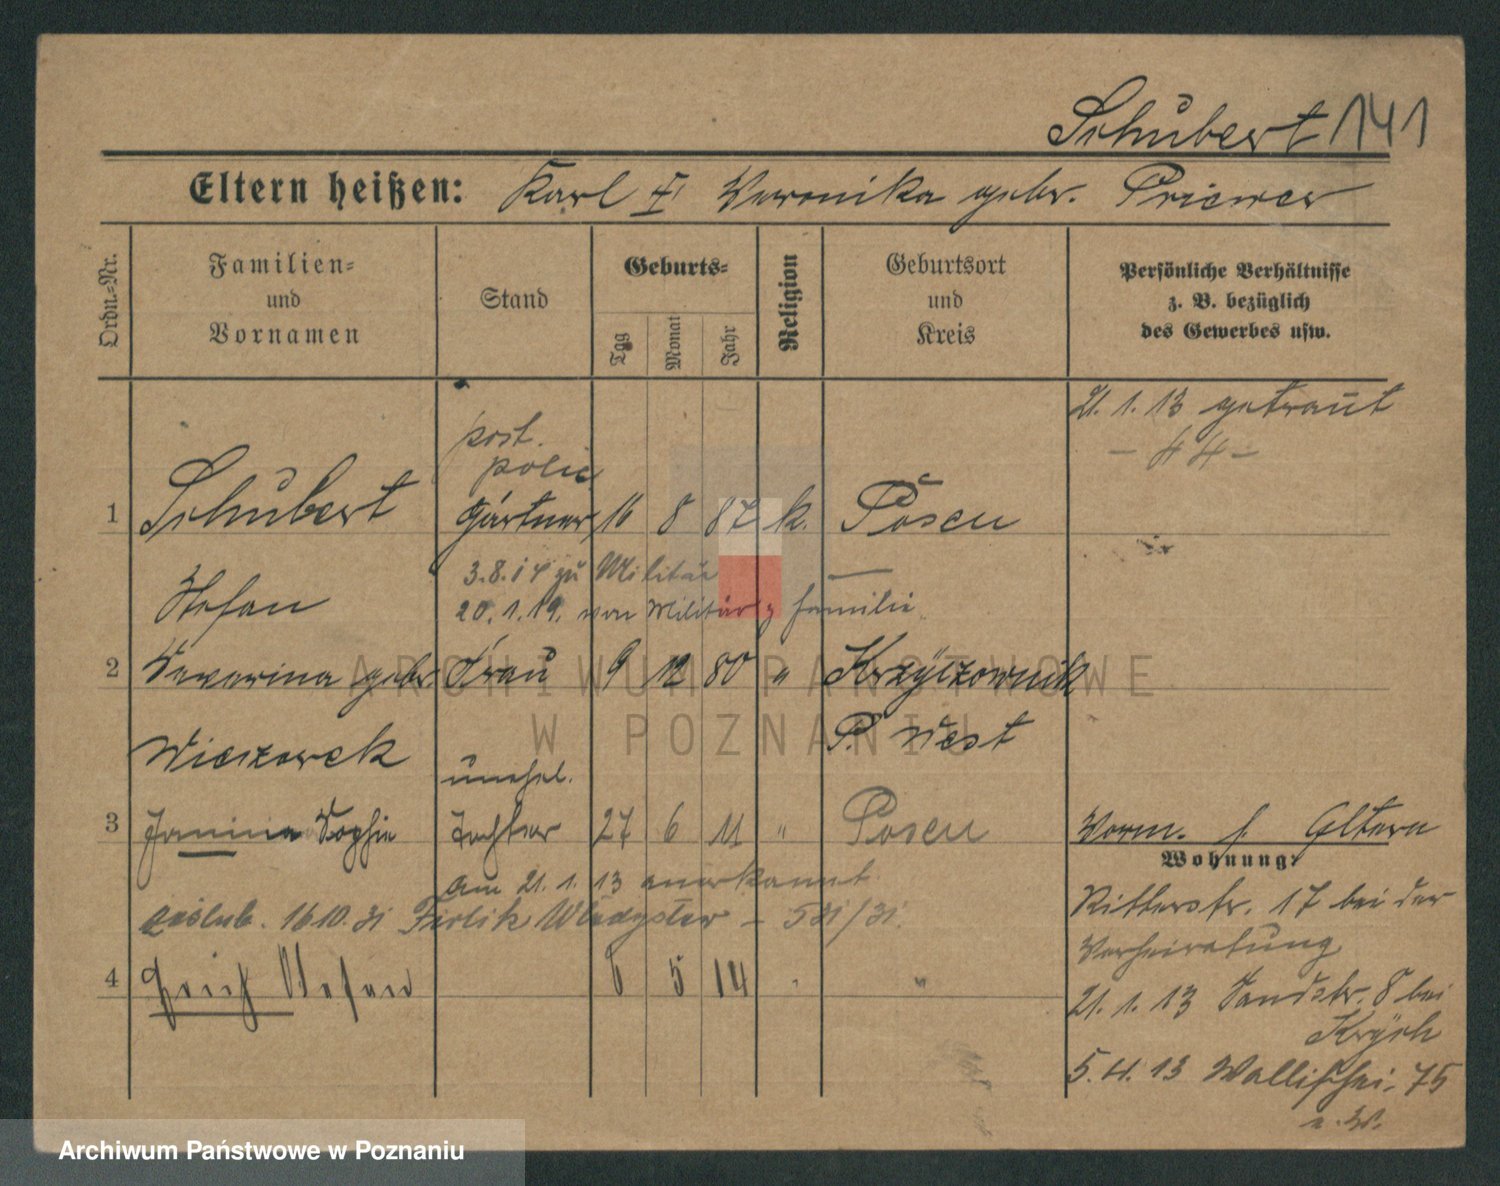 Schubert 141
Eltern heißen: Karl & Veronika gebr. Priewer
Ordn.-Nr.
Familien-
und
Vornamen
Stand
Geburts-
Tag
Monat
Jahr
Religion
Geburtsort
und
Kreis
Persönliche Verhältnisse
z. B. bezüglich
des Gewerbes usw.
21. 1. 13 getraut
post.
polic.
1 Schubert Gärtner 16 8 87 k. Posen
3.8.14 zu Militär
Stefan
20.1.19. von Militär z Familie
2 Severina gebr. Frau 9 12 80 " Krzyszownik
P. West
Wieczorek
unehel.
3 Janina Sophie Tochter 27 6 11 " Posen
Vorm. s. Eltern
Wohnung:
am 21. 1. 13 anerkannt
Ritterstr. 17 bei der
16.10.31 Władysław - 531/31.
Verheiratung
4 Stefan 6 5 14 "
21. 1. 13 Sandstr. 8 bei
Krych
5. 4. 13 Wallischei. 75
ARCHIWUM PAŃSTWOWE
W POZNANIU
Archiwum Państwowe w Poznaniu